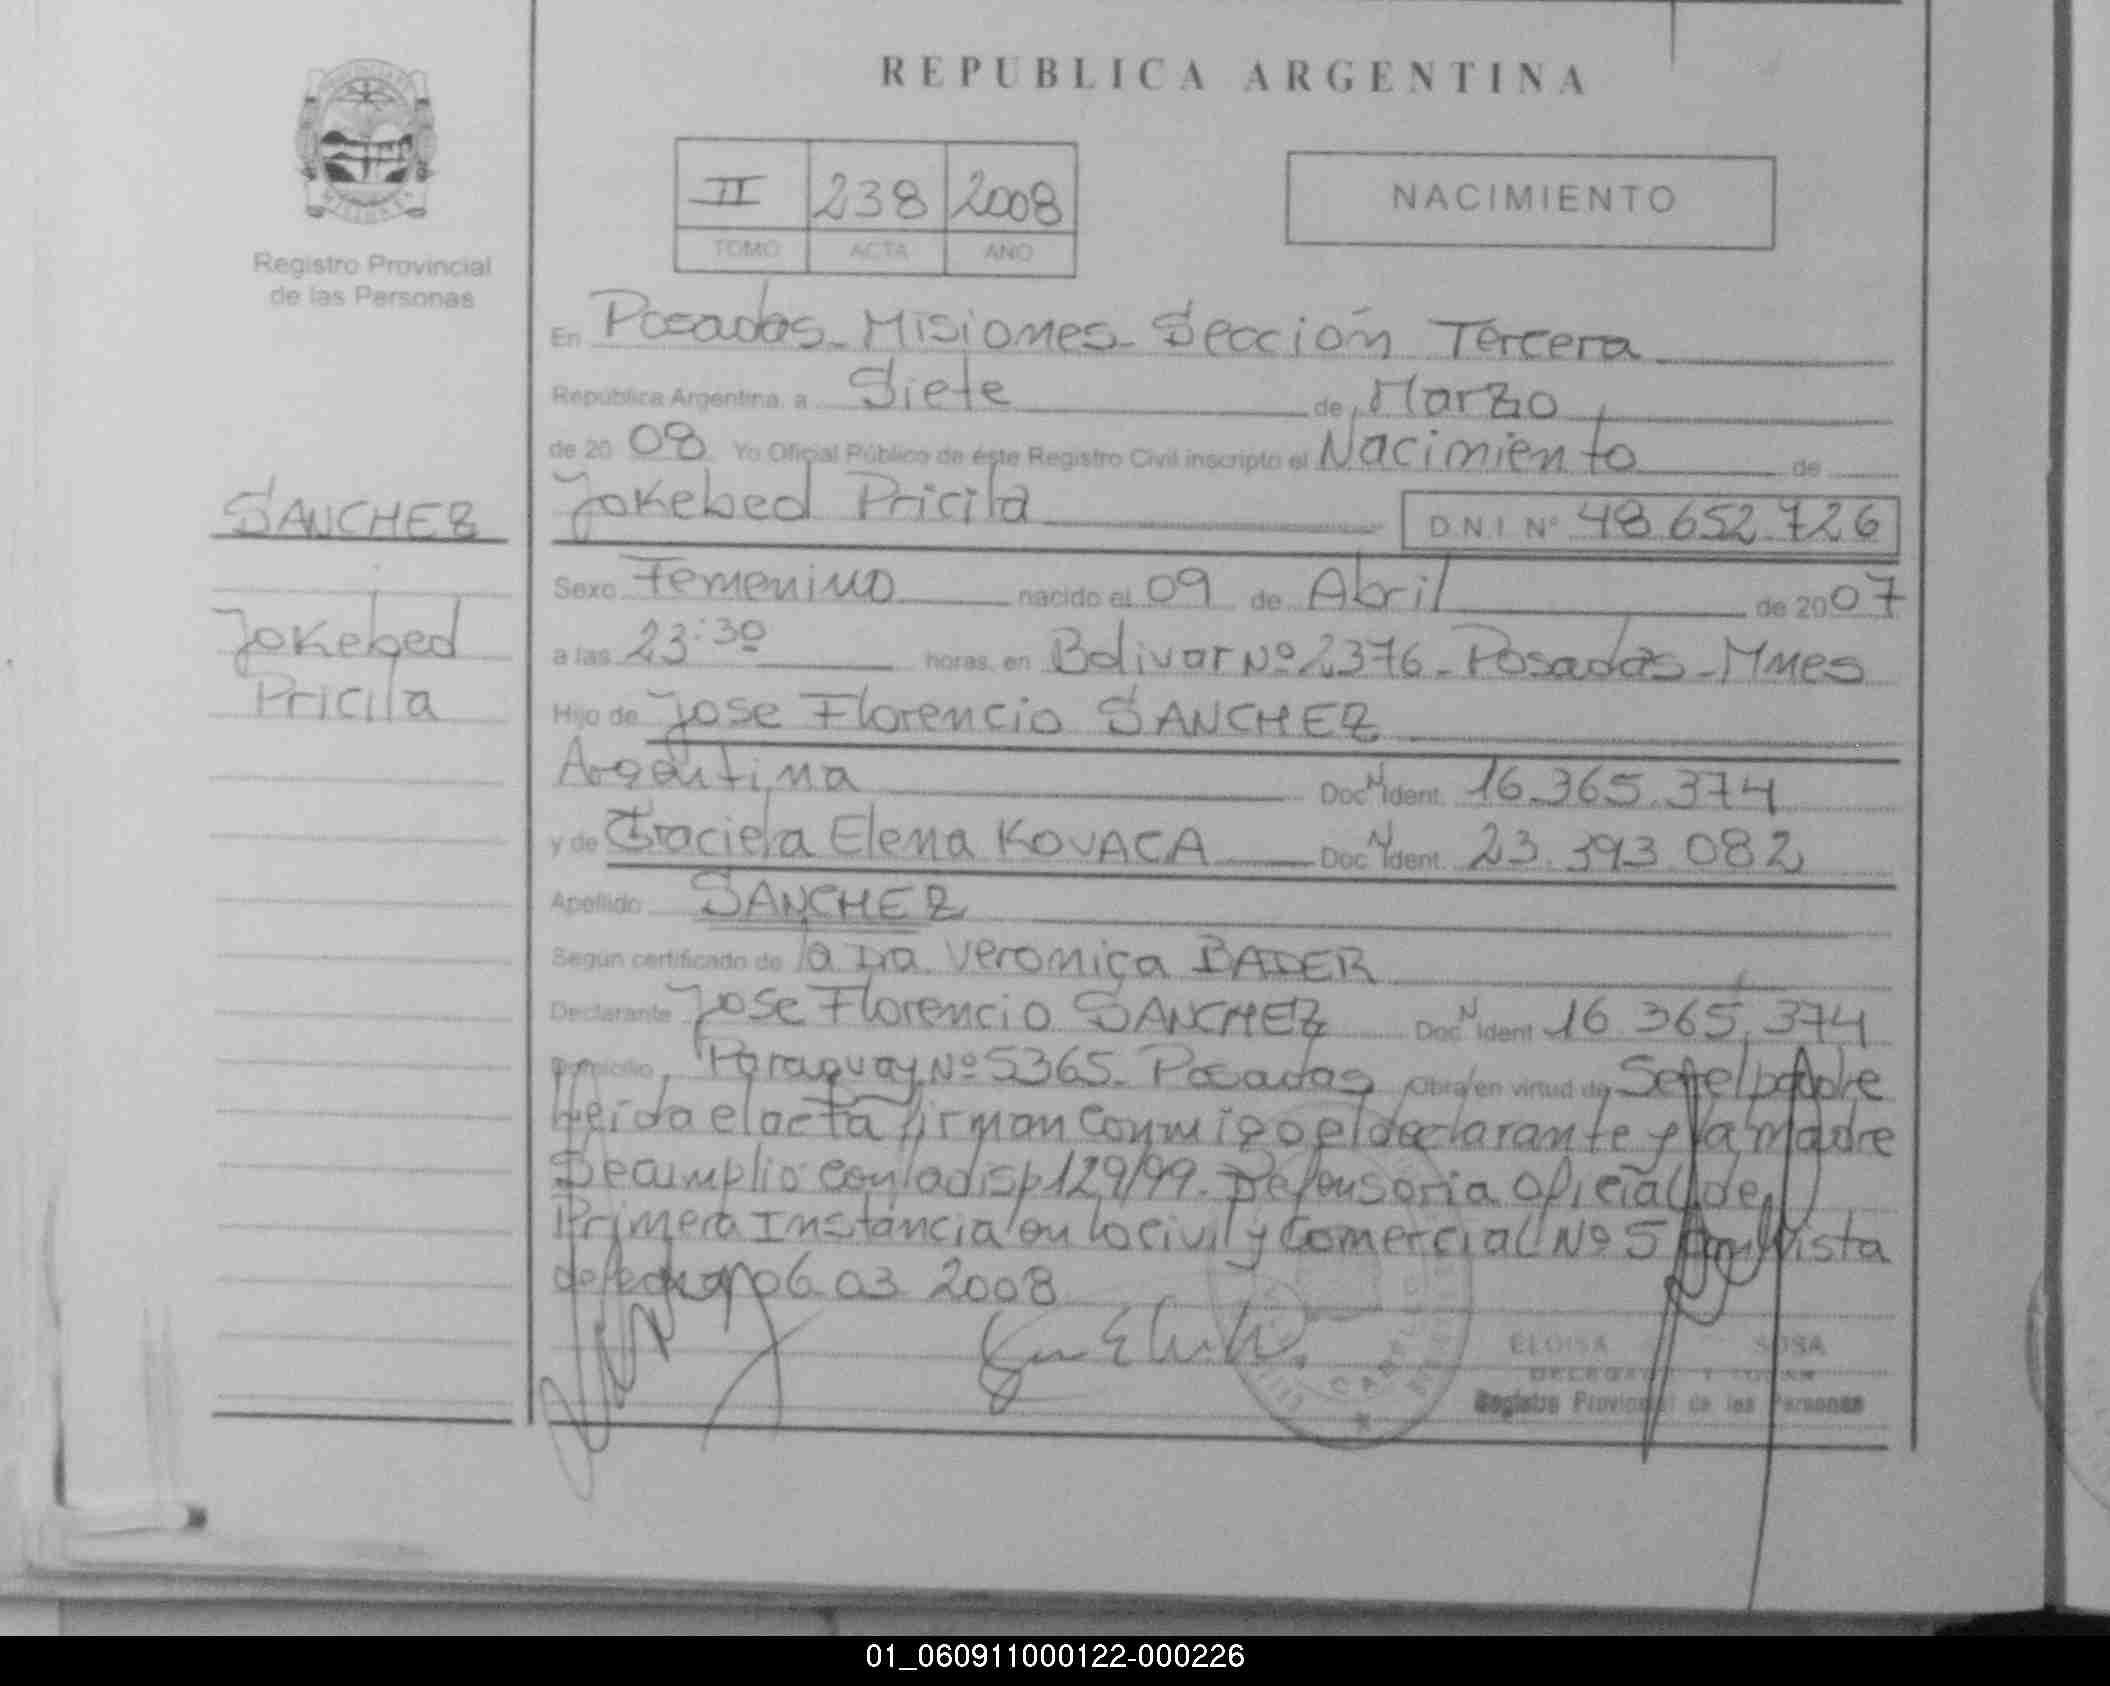 REPUBLICA ARGENTINA
II 238 2008
TOMO ACTA AÑO
NACIMIENTO
Registro Provincial
de las Personas
En Posadas - Misiones - Sección Tercera
República Argentina, a Siete de Marzo
de 2008 Yo Oficial Público de éste Registro Civil inscripto el Nacimiento de
SANCHEZ
Jokebed Pricila D.N.I. Nº 48.652.726
Sexo Femenino nacido el 09 de Abril de 2007
Jokebed
a las 23:30 horas, en Bolivar Nº 2376 - Posadas - Mnes
Pricila
Hijo de Jose Florencio SANCHEZ
Argentina Doc N Ident. 16.365.374
y de Graciela Elena KOVACA Doc N Ident. 23.393.082
Apellido SANCHEZ
Según certificado de la Dra. Veronica BADER
Declarante Jose Florencio SANCHEZ Doc N Ident 16.365.374
Domicilio Paraguay Nº 5365 - Posadas Obra en virtud de Ser el padre
Leida el acta firman conmigo el declarante y la madre
Se cumplio con la disp 129/99. Defensoria Oficial de
Primera Instancia en lo Civil y Comercial Nº 5 vista
de fecha 06 03 2008
ELOISA SOSA
Registro Provincial de las Personas
01_060911000122-000226